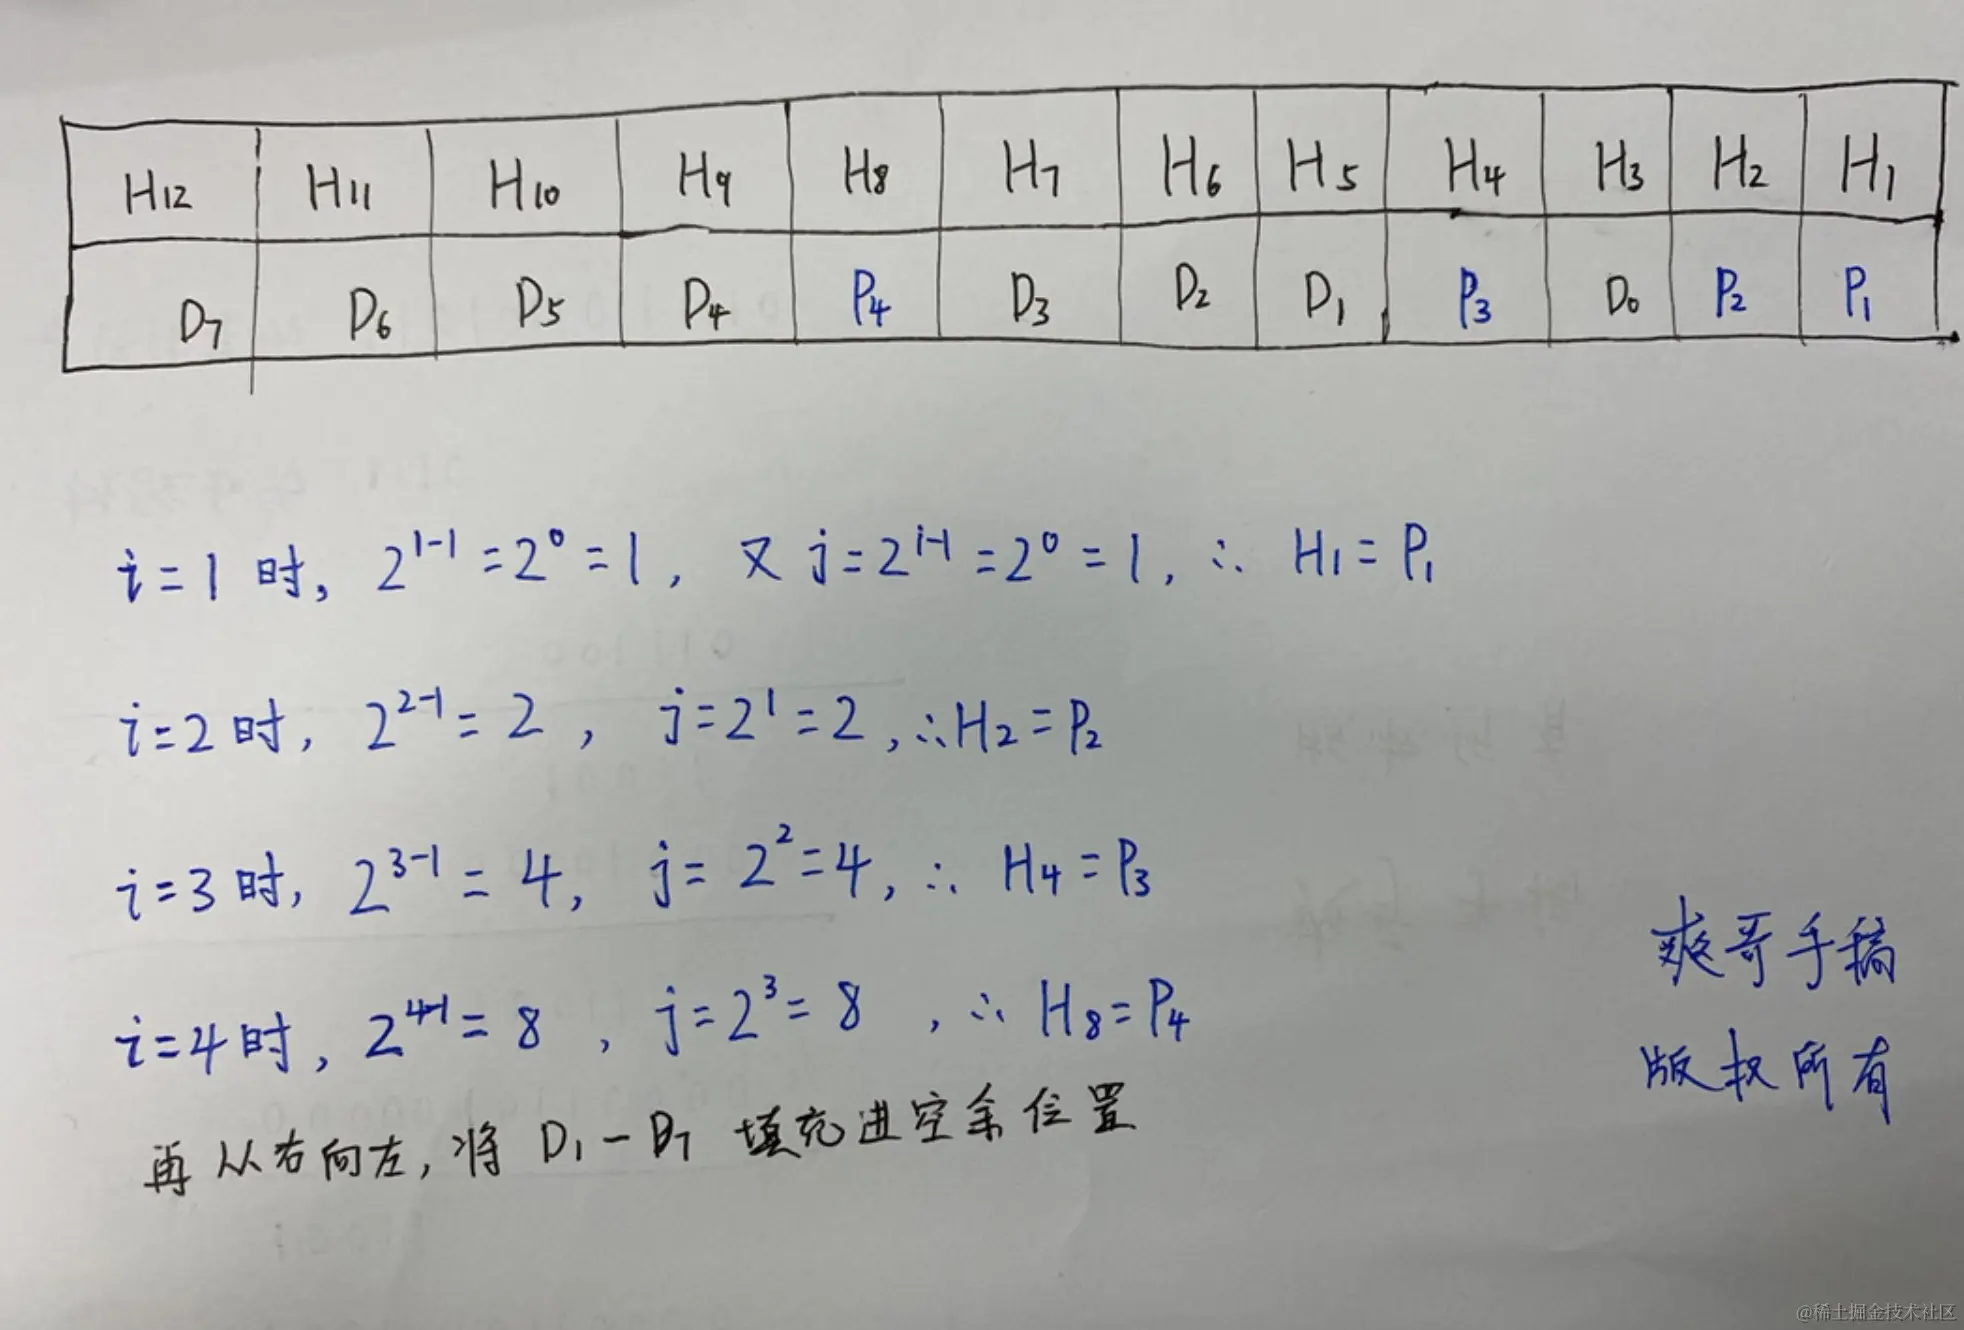 H₁₂ H₁₁ H₁₀ H₉ H₈ H₇ H₆ H₅ H₄ H₃ H₂ H₁
D₇ D₆ D₅ D₄ P₄ D₃ D₂ D₁ P₃ D₀ P₂ P₁
i=1时, 2¹⁻¹=2⁰=1, 又 j=2ⁱ⁻¹=2⁰=1, ∴ H₁=P₁
i=2时, 2²⁻¹=2, j=2¹=2, ∴H₂=P₂
i=3时, 2³⁻¹=4, j=2²=4, ∴ H₄=P₃
i=4时, 2⁴⁻¹=8, j=2³=8, ∴ H₈=P₄
再从右向左, 将 D₁-D₇ 填充进空余位置
爽哥手稿
版权所有
@稀土掘金技术社区